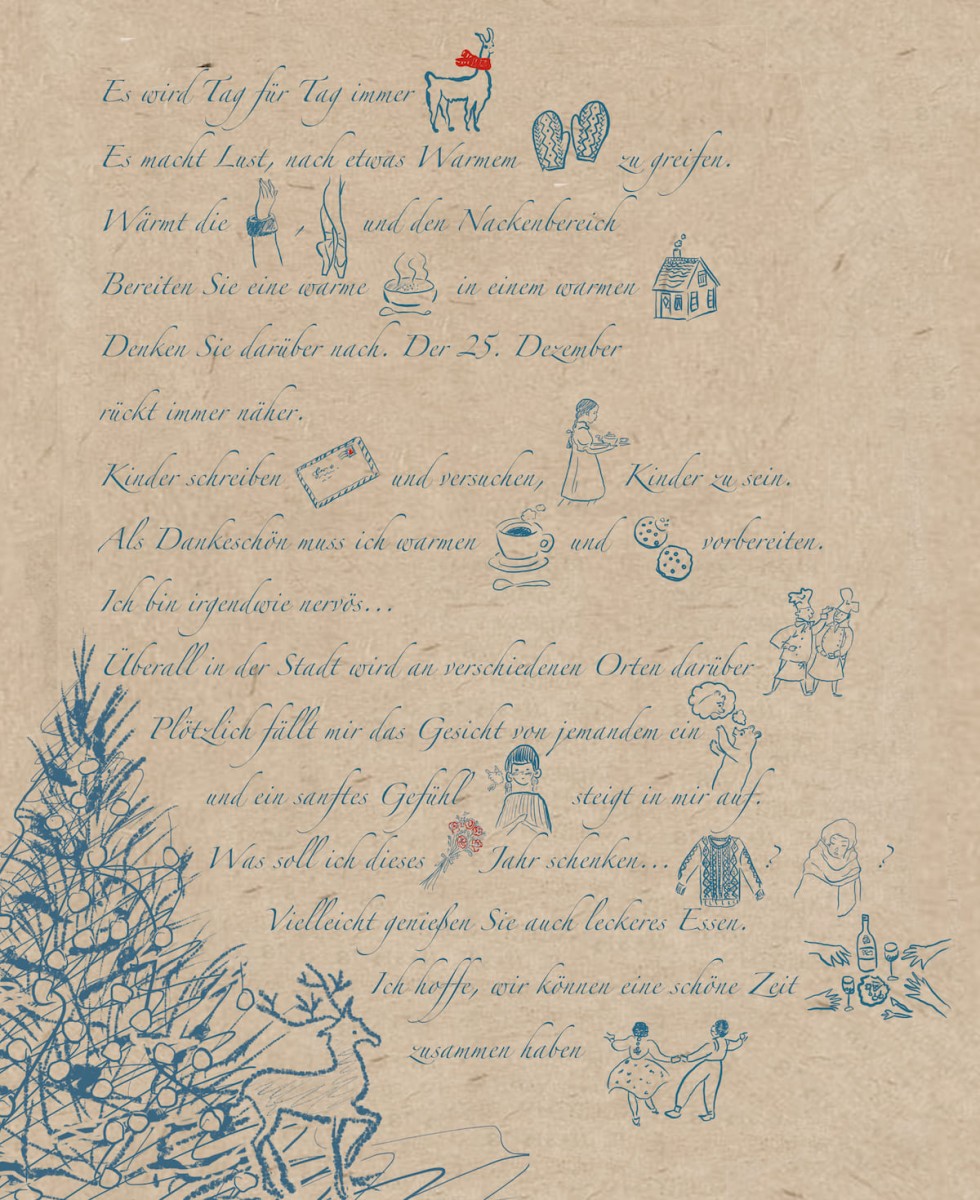 Es wird Tag für Tag immer
Es macht Lust, nach etwas Warmem zu greifen.
Wärmt die , und den Nackenbereich
Bereiten Sie eine warme in einem warmen
Denken Sie darüber nach. Der 25. Dezember
rückt immer näher.
Kinder schreiben und versuchen, Kinder zu sein.
Als Dankeschön muss ich warmen und vorbereiten.
Ich bin irgendwie nervös...
Überall in der Stadt wird an verschiedenen Orten darüber
Plötzlich fällt mir das Gesicht von jemandem ein
und ein sanftes Gefühl steigt in mir auf.
Was soll ich dieses Jahr schenken... ? ?
Vielleicht genießen Sie auch leckeres Essen.
Ich hoffe, wir können eine schöne Zeit
zusammen haben